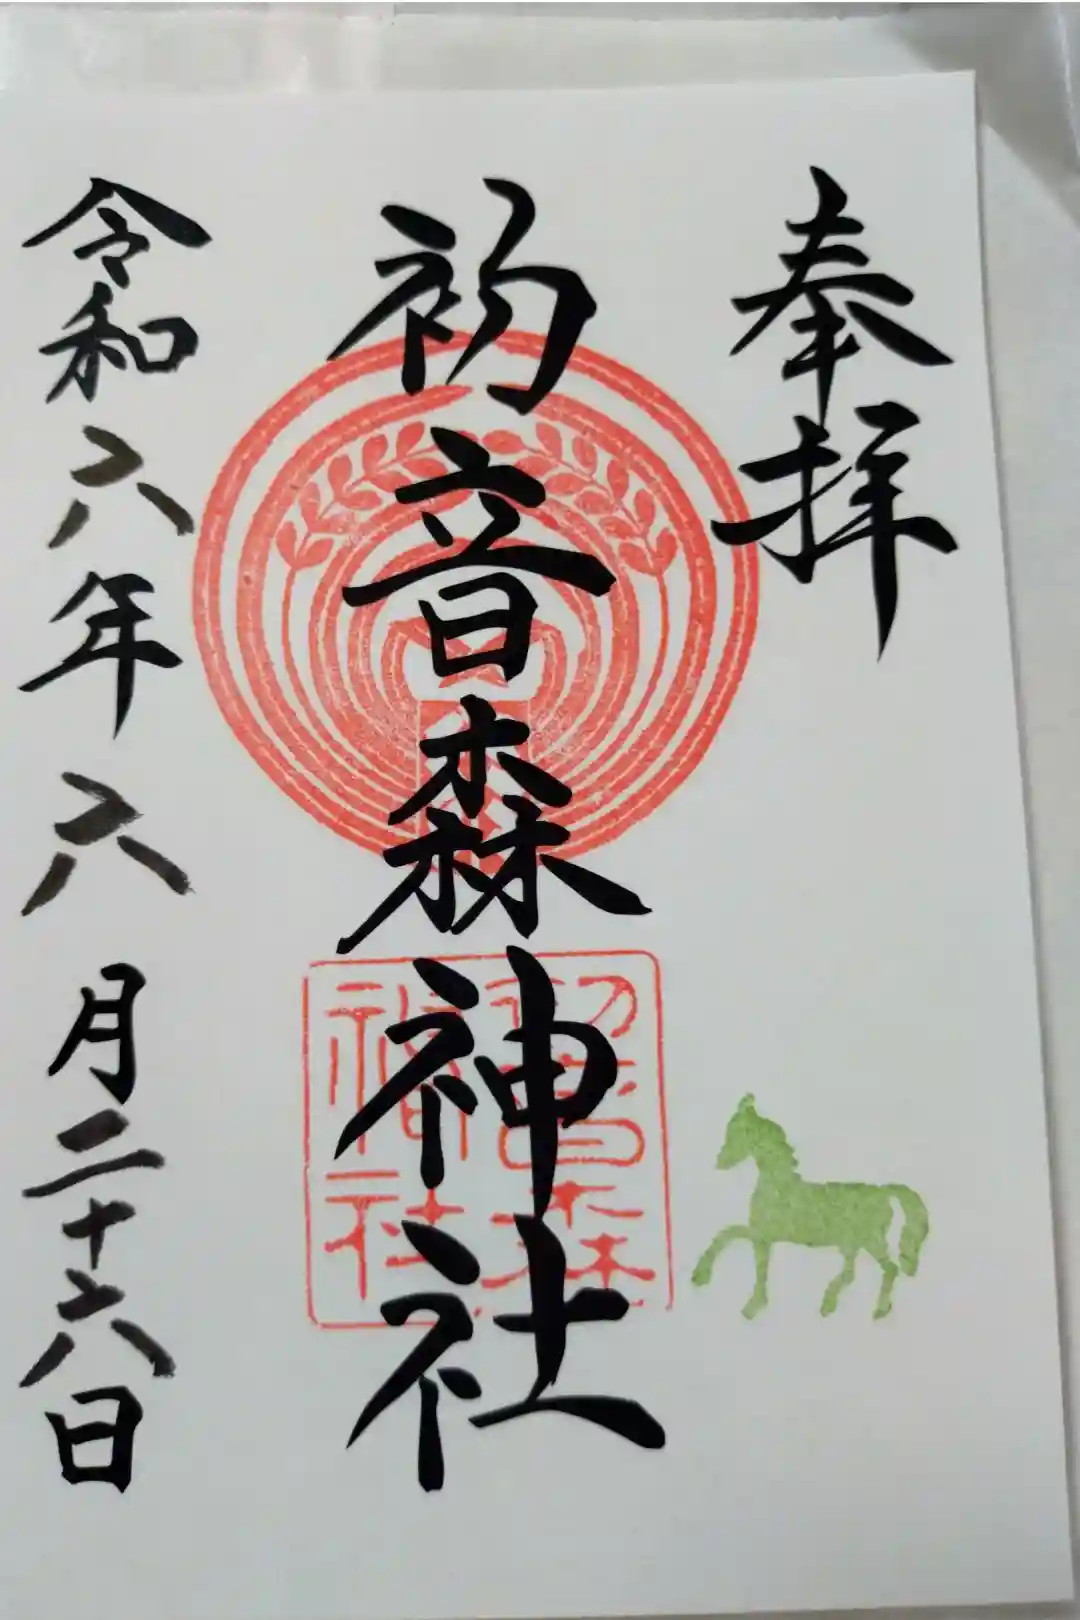 奉拝
初音森神社
初音森
神社
令和六年六月二十六日